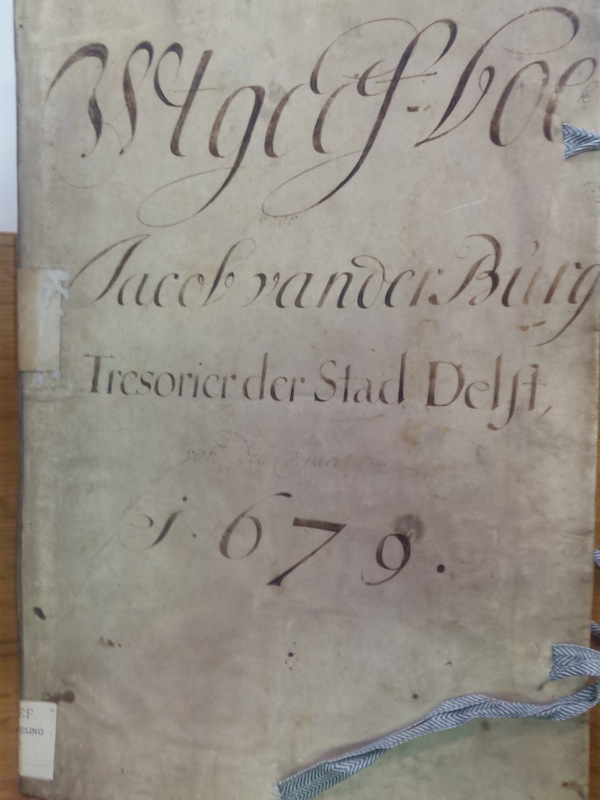 Wtgeef-boe
Jacob vander Burg
Tresorier der Stad Delft,
van den Jare
1.679.